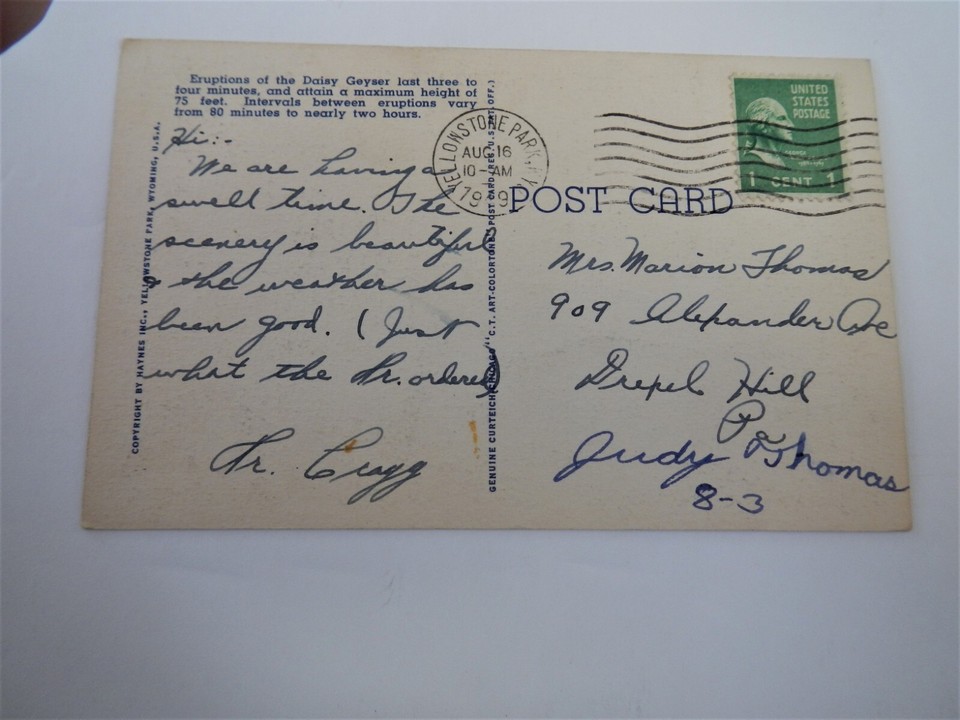 Eruptions of the Daisy Geyser last three to
four minutes, and attain a maximum height of
75 feet. Intervals between eruptions vary
from 80 minutes to nearly two hours.
Hi:-
We are having a
swell time. The
scenery is beautiful
& the weather has
been good. (Just
what the Dr. ordered)
Dr. Cragg
COPYRIGHT BY HAYNES INC., YELLOWSTONE PARK, WYOMING, U.S.A.
GENUINE CURTEICH-CHICAGO "C.T. ART-COLORTONE" POST CARD (REG. U.S. PAT. OFF.)
YELLOWSTONE PARK, WY.
AUG 16
10-AM
UNITED
STATES
POSTAGE
1 CENT 1
POST CARD
Mrs. Marion Thomas
909 Alexander Ave
Drexel Hill
Pa
Judy Thomas
8-3